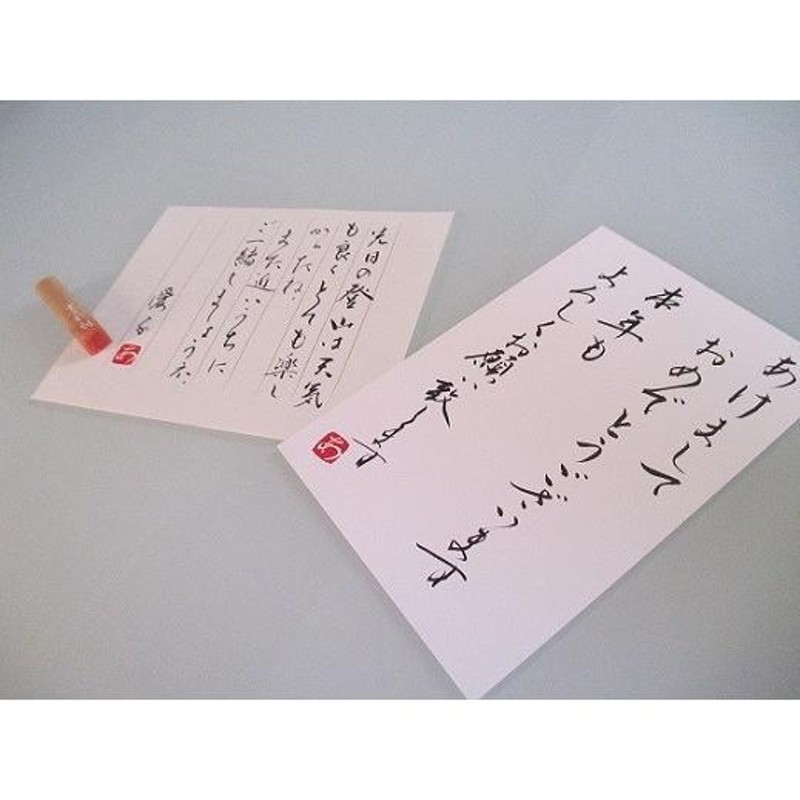 あけまして
おめでとうございます
本年も
よろしくお願い致します
あ
先日の登山は天気
も良くとても楽し
かったね。
また近いうちに
ご一緒しましょうね。
あ